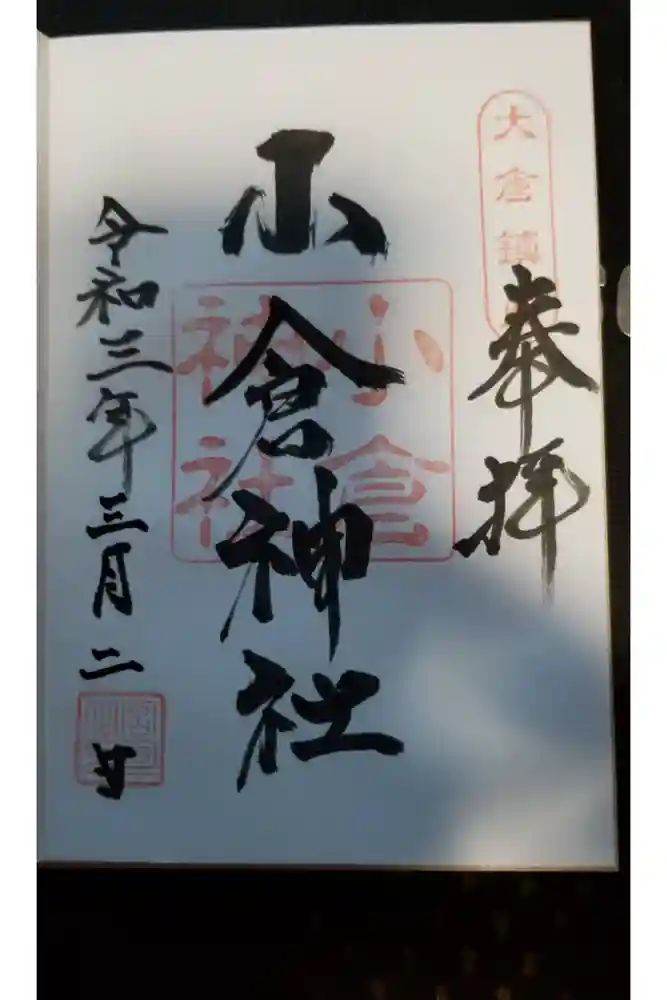 大倉鎮
奉拝
小倉神社
小倉
神社
令和三年三月二廿